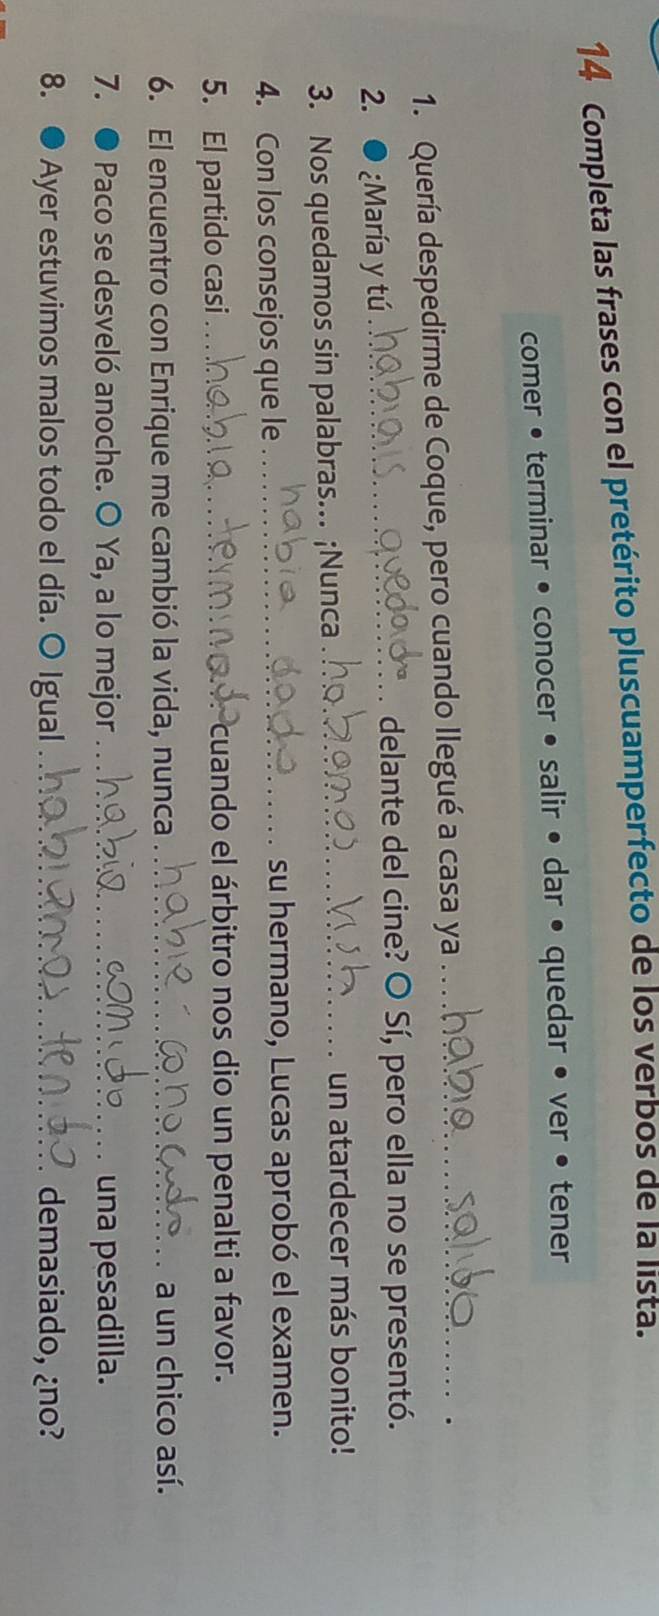 14 Completa las frases con el pretérito pluscuamperfecto de los verbos de la lista.
comer • terminar • conocer • salir • dar • quedar • ver • tener
1. Quería despedirme de Coque, pero cuando llegué a casa ya habia salido.
2. ● ¿María y tú habiais quedado delante del cine? ○ Sí, pero ella no se presentó.
3. Nos quedamos sin palabras... ¡Nunca habiamos visto un atardecer más bonito!
4. Con los consejos que le habia dado su hermano, Lucas aprobó el examen.
5. El partido casi habia terminado cuando el árbitro nos dio un penalti a favor.
6. El encuentro con Enrique me cambió la vida, nunca habia conocido a un chico así.
7. ● Paco se desveló anoche. ○ Ya, a lo mejor habia comido una pesadilla.
8. ● Ayer estuvimos malos todo el día. ○ Igual habiamos tenido demasiado, ¿no?